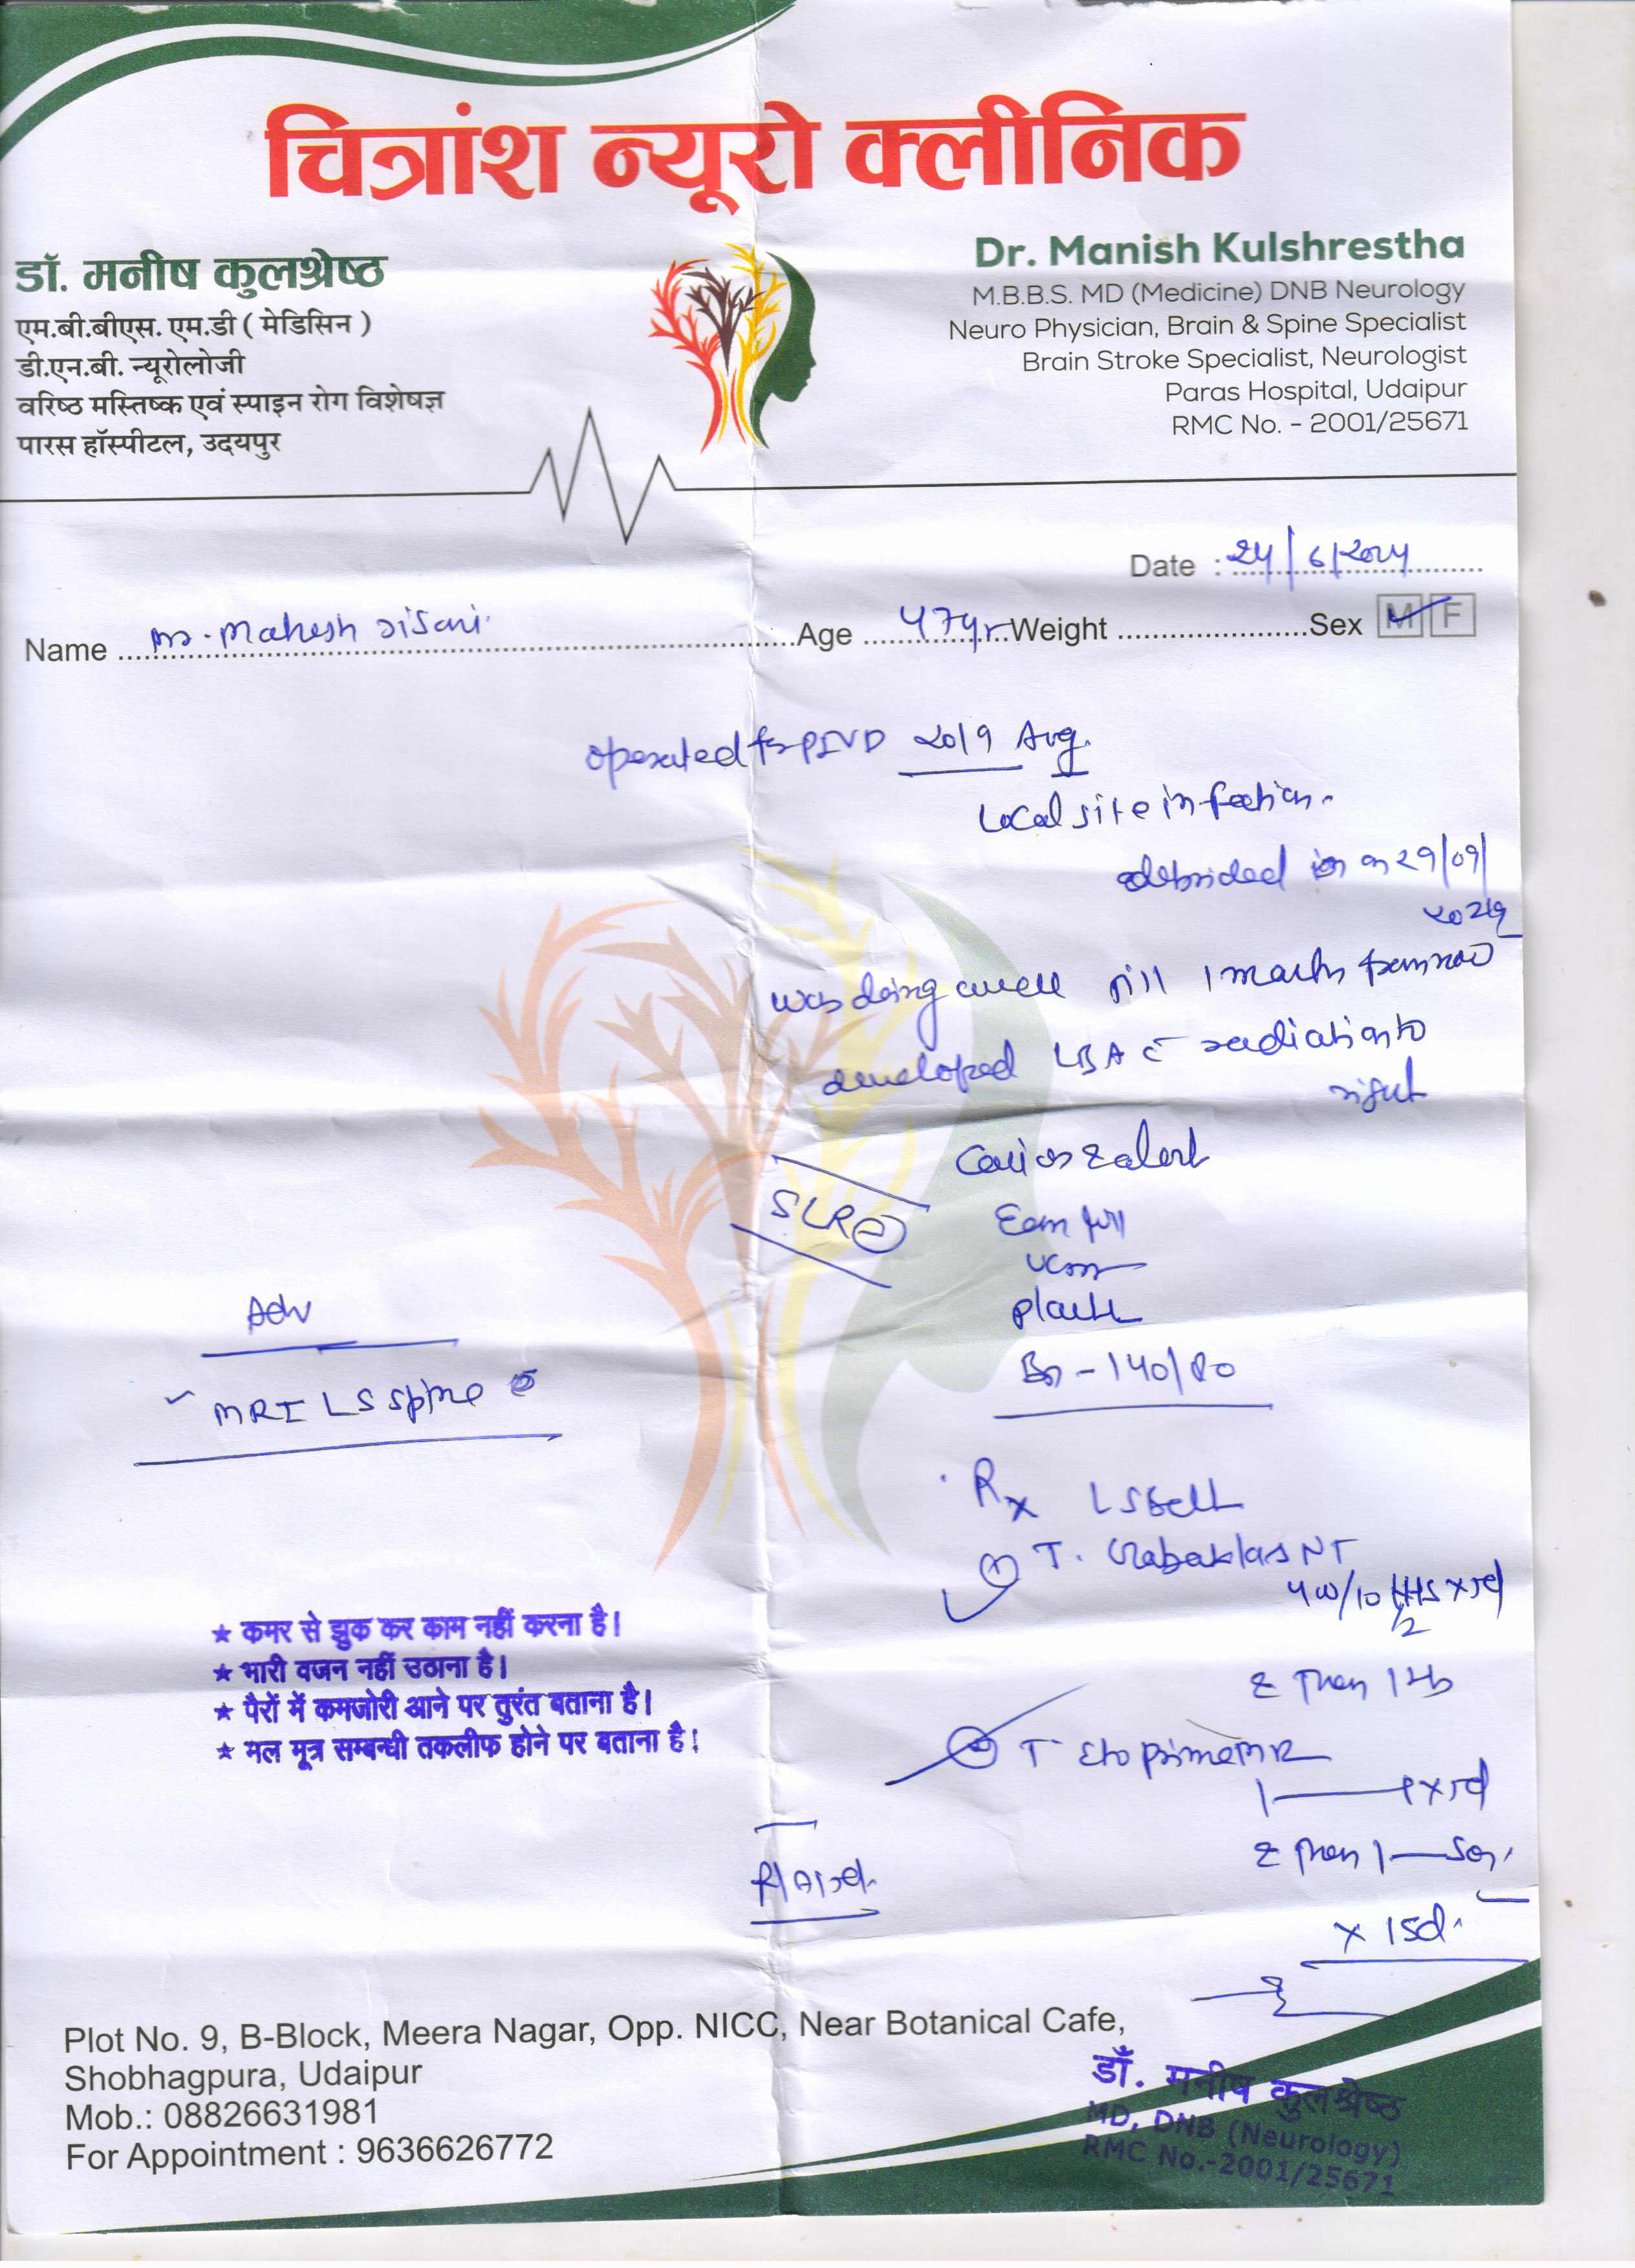 चित्रांश न्यूरो क्लीनिक
डॉ. मनीष कुलश्रेष्ठ
एम.बी.बीएस. एम.डी ( मेडिसिन )
डी.एन.बी. न्यूरोलोजी
वरिष्ठ मस्तिष्क एवं स्पाइन रोग विशेषज्ञ
पारस हॉस्पीटल, उदयपुर
Dr. Manish Kulshrestha
M.B.B.S. MD (Medicine) DNB Neurology
Neuro Physician, Brain & Spine Specialist
Brain Stroke Specialist, Neurologist
Paras Hospital, Udaipur
RMC No. - 2001/25671
Date : 24/6/2024
Name Mr. Mahesh Age 47yr Weight Sex M F
operated for PIVD 2019 Aug.
Local site infection.
debrided on 29/09/
was doing well till 1 month from now
developed LBA c radiation to
right
Conscious & alert
SLR
Eom full
Adv
MRI LS spine
BP - 140/80
Rx LS Belt
T. NT
400/10 HS x 5d
& then 1 HS
T. MR
x 5d
& then 1 — SOS
x 15d.
★ कमर से झुक कर काम नहीं करना है।
★ भारी वजन नहीं उठाना है।
★ पैरों में कमजोरी आने पर तुरंत बताना है।
★ मल मूत्र सम्बन्धी तकलीफ होने पर बताना है।
Plot No. 9, B-Block, Meera Nagar, Opp. NICC, Near Botanical Cafe,
Shobhagpura, Udaipur
Mob.: 08826631981
For Appointment : 9636626772
डॉ. मनीष कुलश्रेष्ठ
MD, DNB (Neurology)
RMC No.-2001/25671